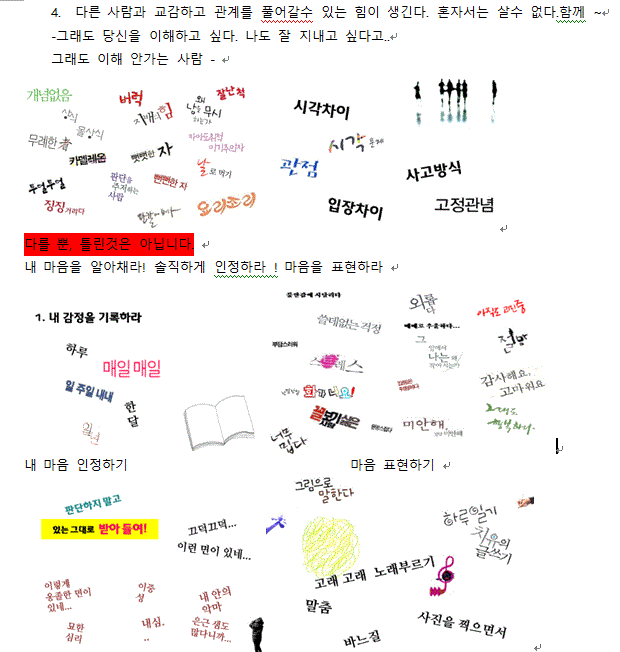 4. 다른 사람과 교감하고 관계를 풀어갈수 있는 힘이 생긴다. 혼자서는 살수 없다.함께 ~
-그래도 당신을 이해하고 싶다. 나도 잘 지내고 싶다고..
그래도 이해 안가는 사람 -
개념없음
버럭
왜 남을 무시
잘난척
상식
몰상식
지배의 힘
무례한 者
카멜레온
뻣뻣한 자
이기주의자
날로 먹기
두얼두얼
판단을 주저하는 사람
뻔뻔한 자
징징거리다
요리조리
시각차이
시각
관점
사고방식
입장차이
고정관념
다를 뿐, 틀린것은 아닙니다.
내 마음을 알아채라! 솔직하게 인정하라 ! 마음을 표현하라
1. 내 감정을 기록하라
하루
매일 매일
일 주일 내내
한 달
일년
불안감에 시달리다
쓸데없는 걱정
외롭다
아직도 고민중
부담스러워
스트레스
그
나는 왜
절망
화가 나요!
감사해요, 고마워요
너무 밉다
미안해,
그래도 행복하다.
내 마음 인정하기
마음 표현하기
판단하지 말고
있는 그대로 받아 들여!
끄덕끄덕...
이런 면이 있네...
이렇게 옹졸한 면이 있네...
이중성
내 안의 악마
묘한 심리
내심..
은근 샘도 많다니까...
그림으로 말한다
하루 일기
치유의 글쓰기
고래 고래 노래부르기
말춤
바느질
사진을 찍으면서